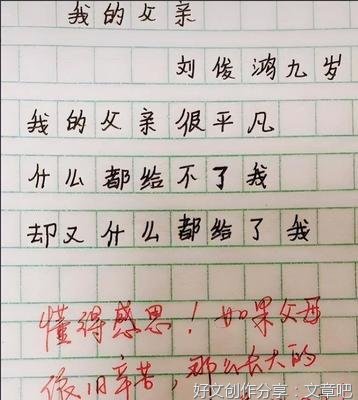 我的父亲
刘俊鸿九岁
我的父亲很平凡
什么都给不了我
却又什么都给了我
懂得感恩！如果父母
很辛苦，那么长大的
好文创作分享：文章吧